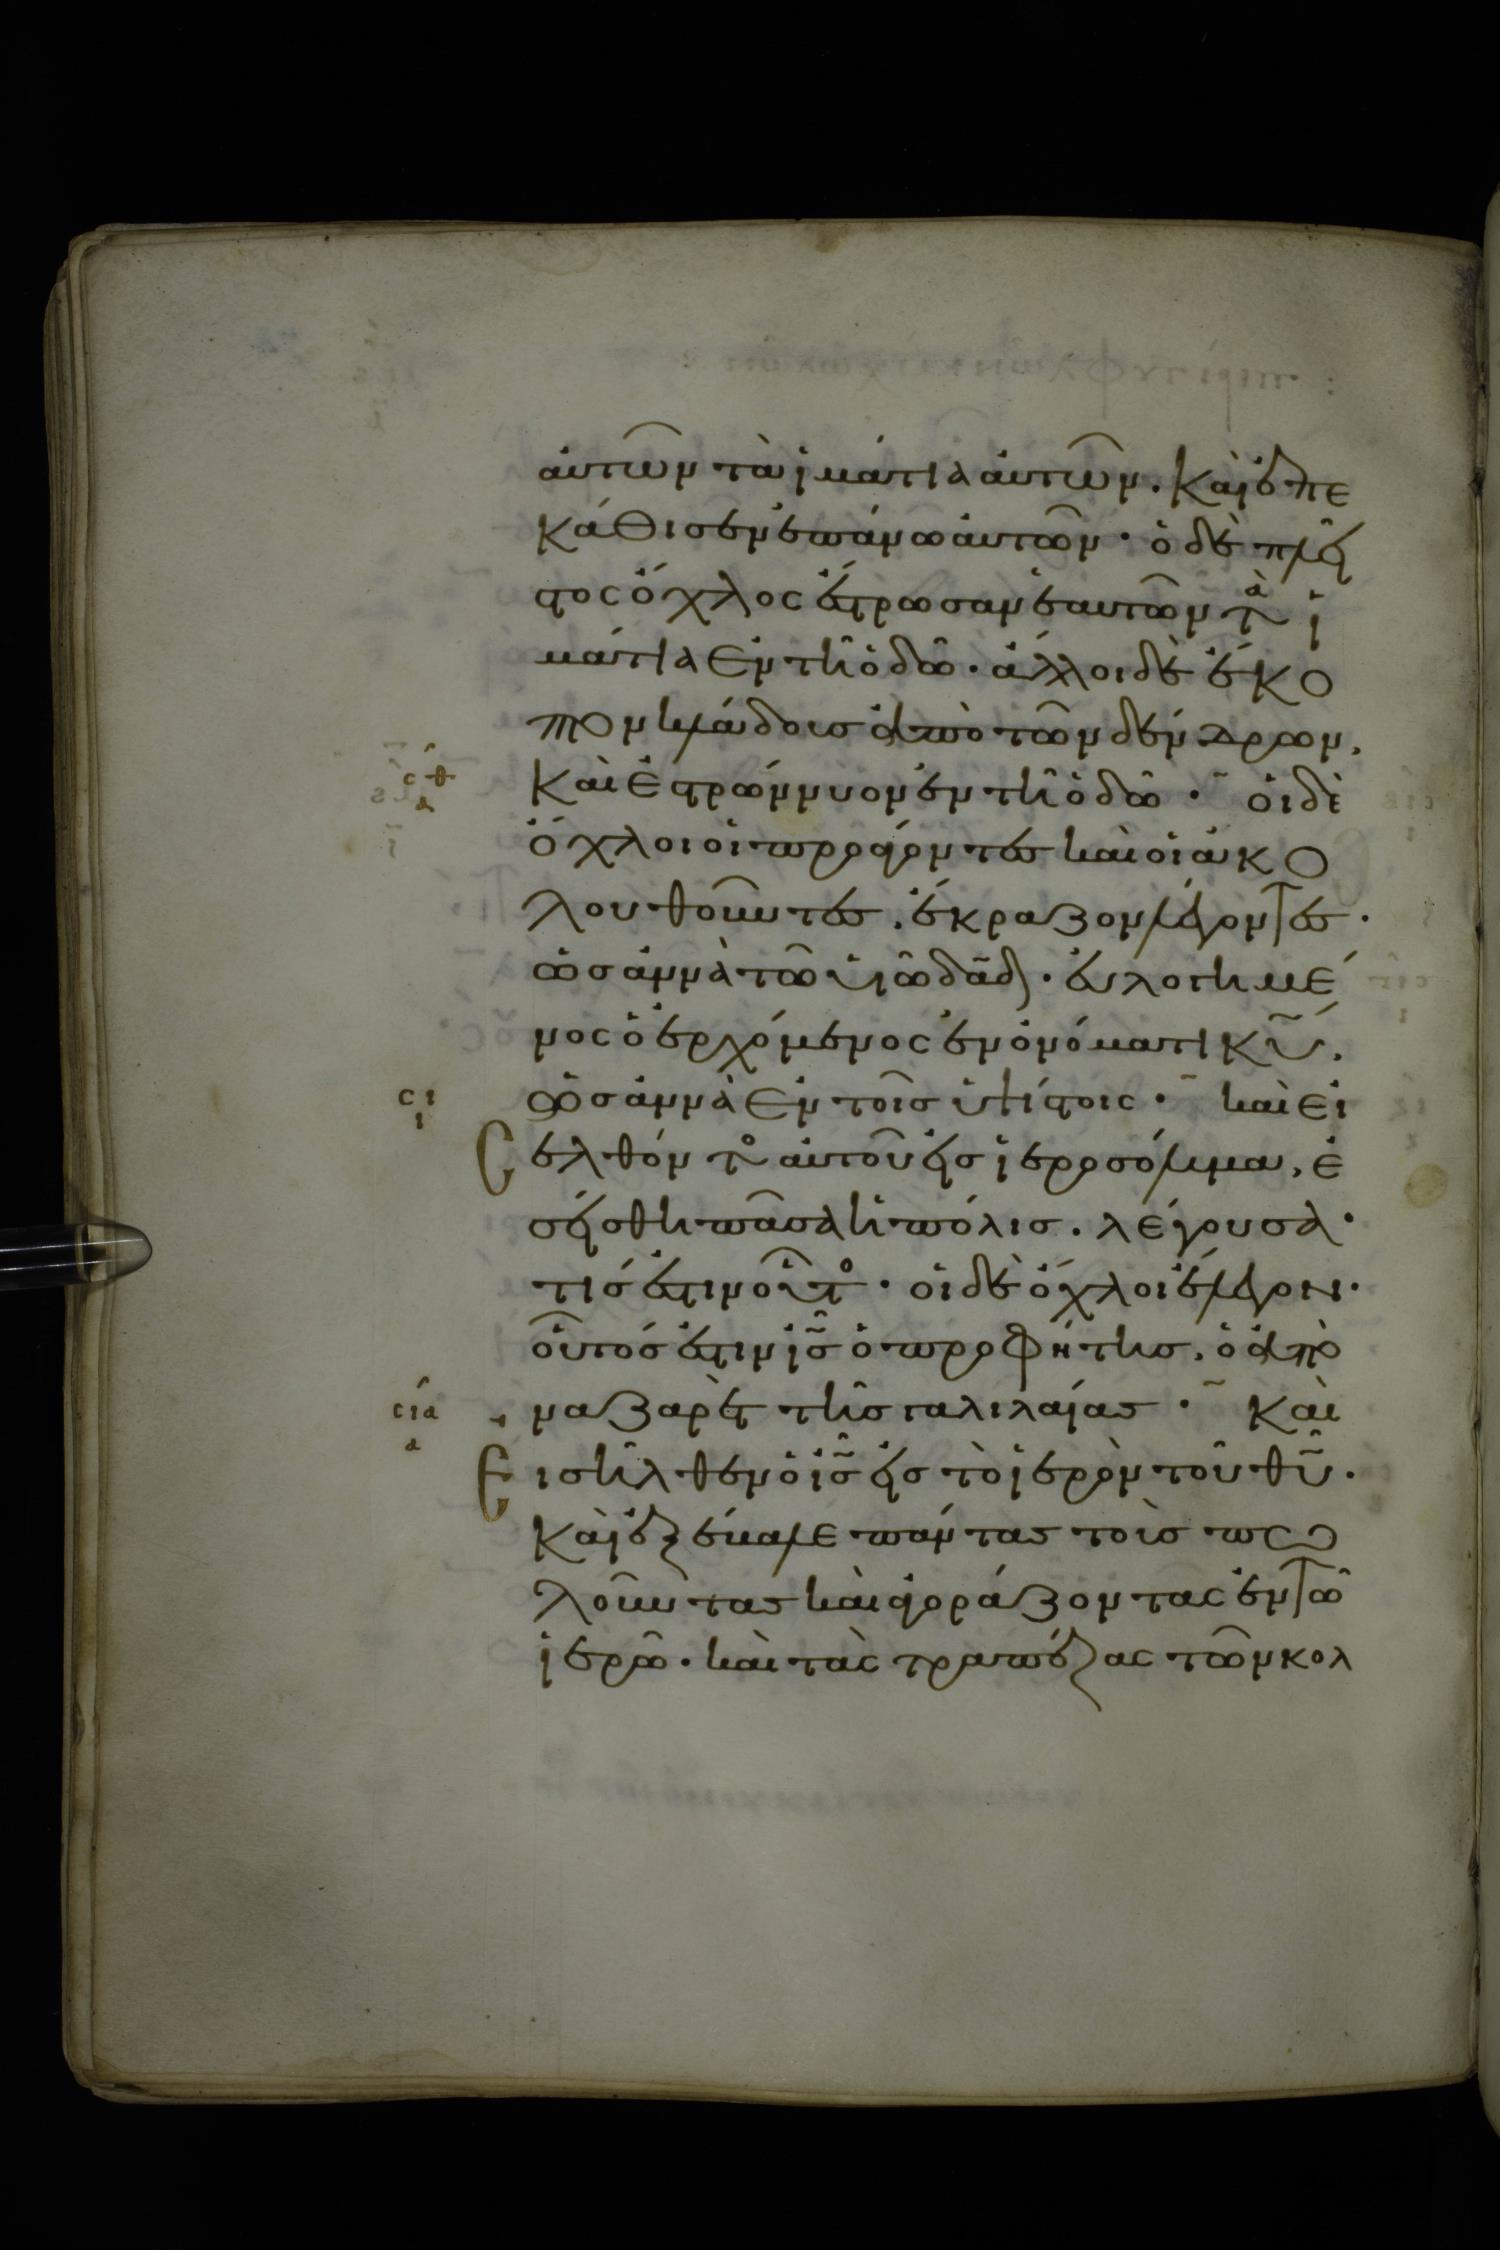 αὐτῶν τὰ ἱμάτια αὐτῶν. Καὶ ἐπε
κάθισεν ἐπάνω αὐτῶν· ὁ δὲ πλεῖ
στος ὄχλος ἔστρωσαν ἑαυτῶν τὰ ἱ
μάτια ἐν τῆ ὁδῶ· ἄλλοι δὲ ἔκο
πτον κλάδους ἀπὸ τῶν δένδρων,
σθ
δ
Καὶ ἐστρώννυον ἐν τῆ ὁδῶ· οἱ δὲ
ὄχλοι οἱ προάγοντες καὶ οἱ ἀκο
λουθοῦντες, ἔκραζον λέγοντες·
ὡσαννὰ τῶ υἱῶ δαδ· εὐλογημέ
νος ὁ ἐρχόμενος ἐν ὀνόματι κυ,
σι
ι
ὡσαννὰ ἐν τοῖς ὑψίστοις· καὶ εἰ
Σελθόντος αὐτοῦ εἰς ἱεροσόλυμα, ἐ
σείσθη πᾶσα ἡ πόλις. λέγουσα·
τίς ἐστιν οὗτος· οἱ δὲ ὄχλοι ἔλεγον·
οὗτός ἐστιν ις ὁ προφήτης, ὁ ἀπὸ
σια
δ
ναζαρὲτ τῆς γαλιλαίας· Καὶ
Εἰσῆλθεν ὁ ις εἰς τὸ ἱερὸν τοῦ θυ.
Καὶ ἐξέβαλε πάντας τοὺς πω
λοῦντας καὶ ἀγοράζοντας ἐν τῶ
ἱερῶ· καὶ τὰς τραπέζας τῶν κολ